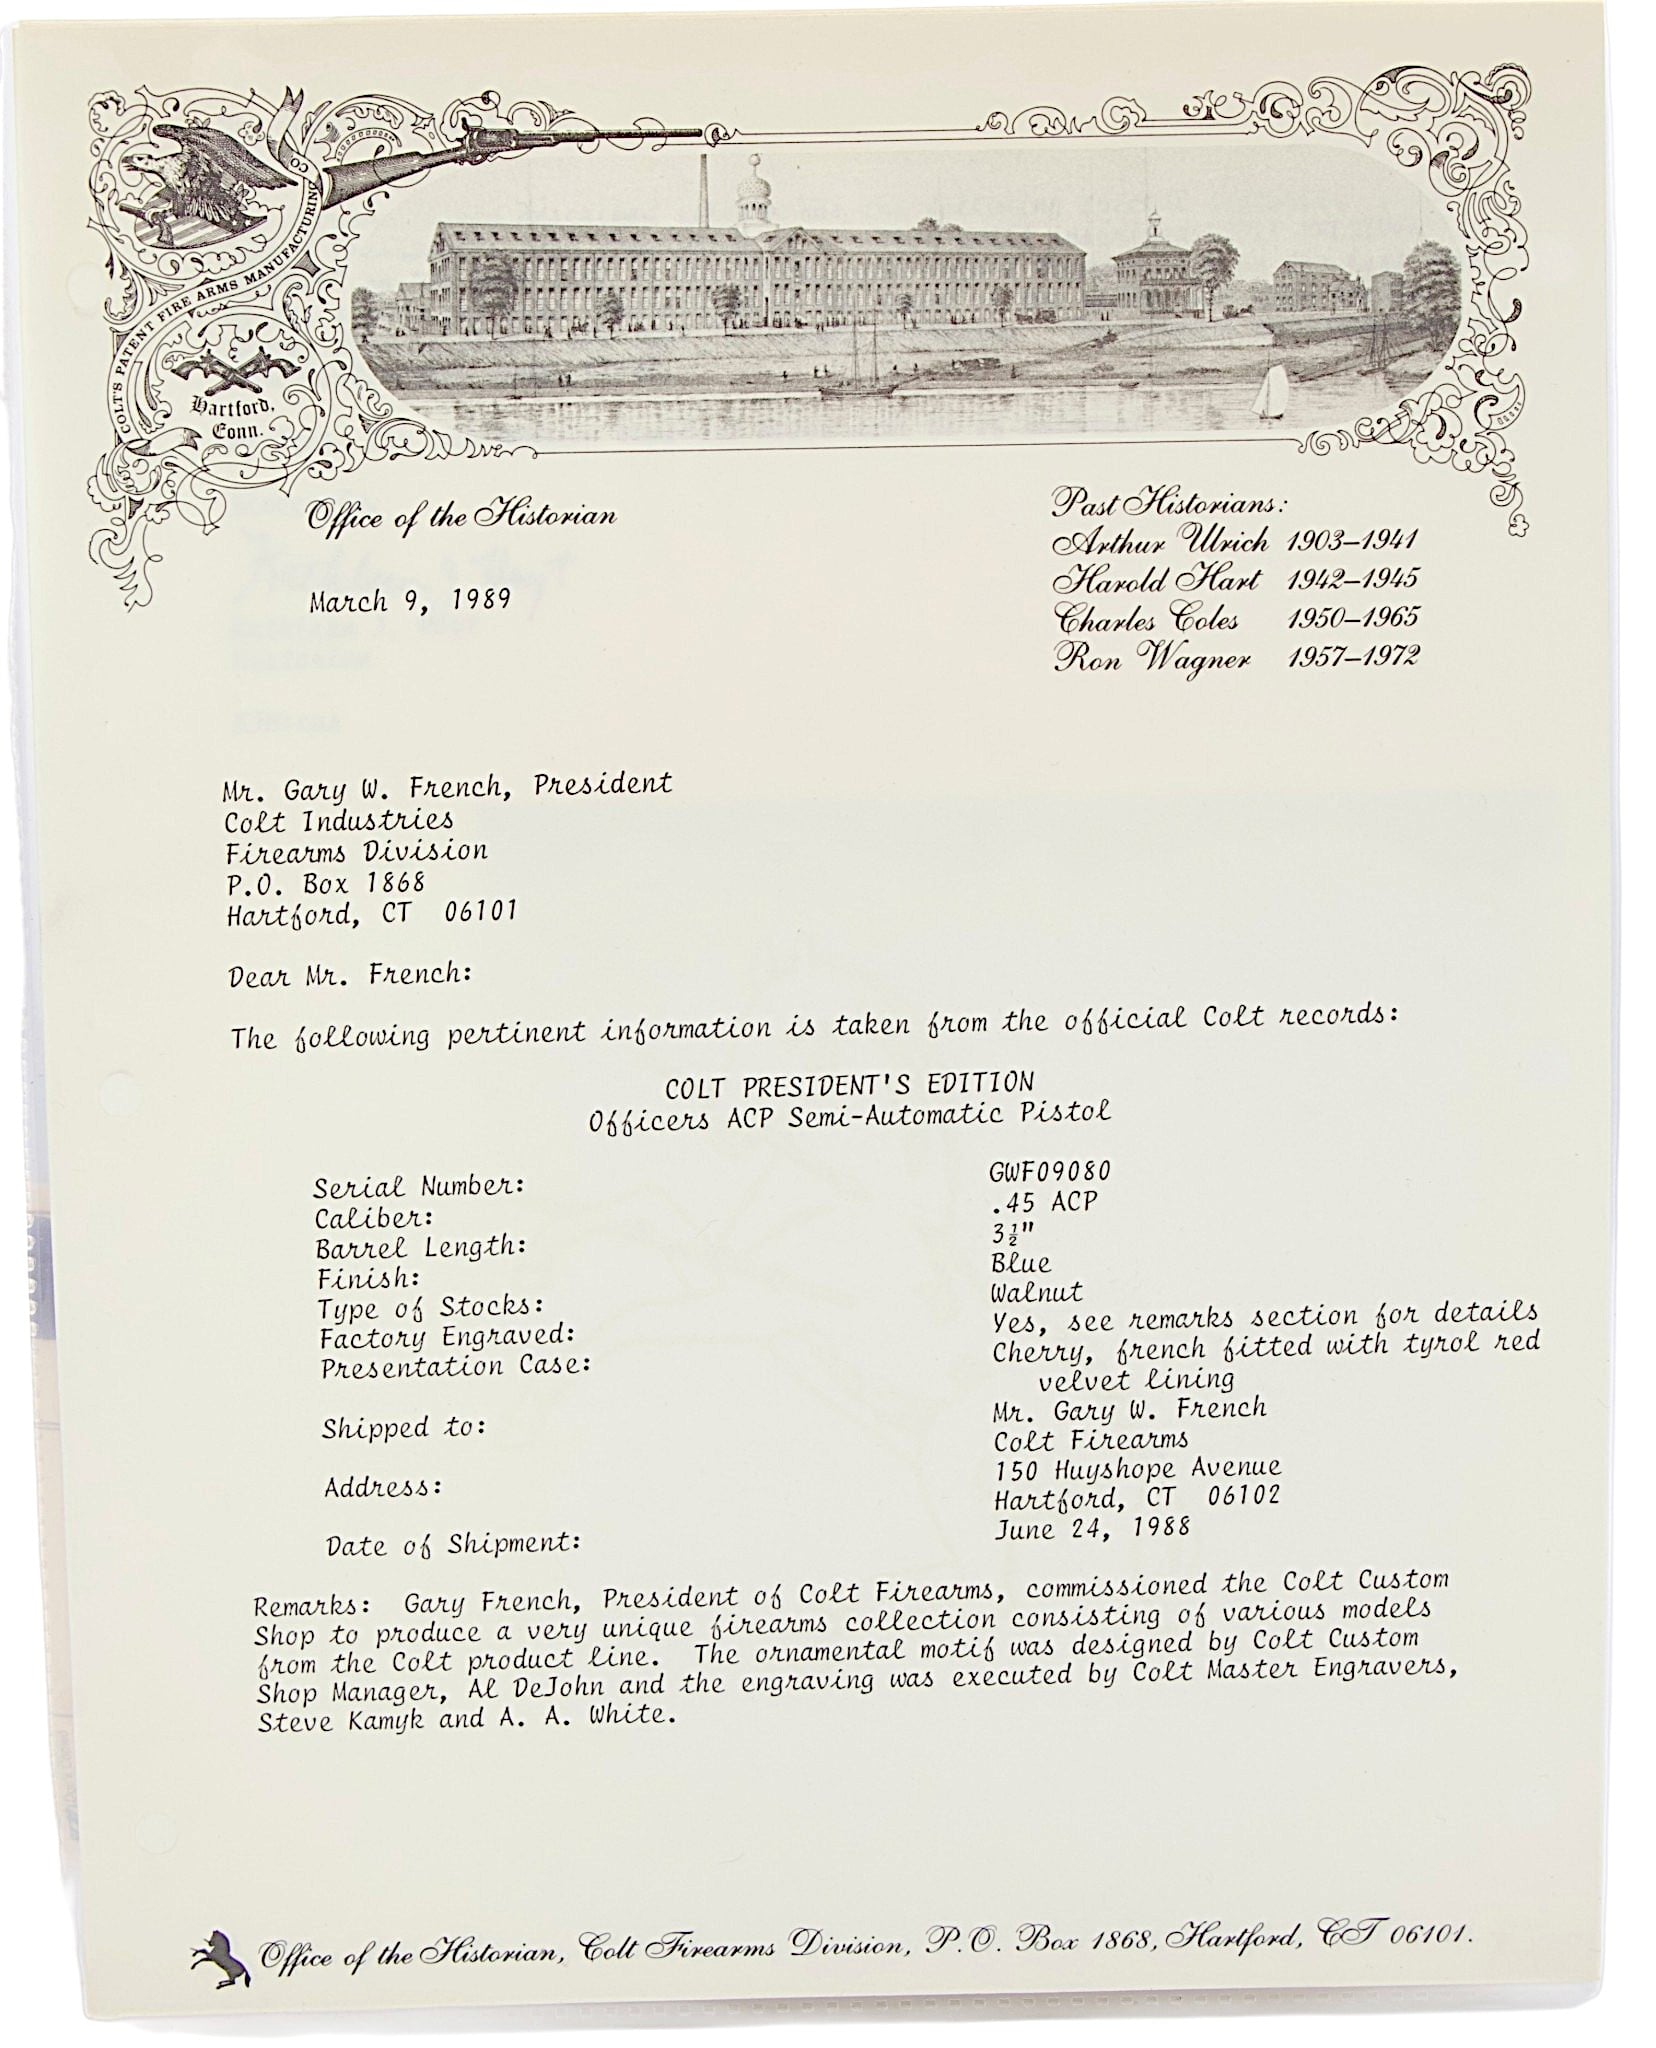 COLT'S PATENT FIRE ARMS MANUFACTURING CO
Hartford,
Conn.
Office of the Historian
Past Historians:
Arthur Ulrich 1903–1941
Harold Hart 1942–1945
Charles Coles 1950–1965
Ron Wagner 1957–1972
March 9, 1989
Mr. Gary W. French, President
Colt Industries
Firearms Division
P.O. Box 1868
Hartford, CT 06101
Dear Mr. French:
The following pertinent information is taken from the official Colt records:
COLT PRESIDENT'S EDITION
Officers ACP Semi-Automatic Pistol
Serial Number: GWF09080
Caliber: .45 ACP
Barrel Length: 3½"
Finish: Blue
Type of Stocks: Walnut
Factory Engraved: Yes, see remarks section for details
Presentation Case: Cherry, french fitted with tyrol red
velvet lining
Shipped to: Mr. Gary W. French
Colt Firearms
Address: 150 Huyshope Avenue
Hartford, CT 06102
Date of Shipment: June 24, 1988
Remarks: Gary French, President of Colt Firearms, commissioned the Colt Custom
Shop to produce a very unique firearms collection consisting of various models
from the Colt product line. The ornamental motif was designed by Colt Custom
Shop Manager, Al DeJohn and the engraving was executed by Colt Master Engravers,
Steve Kamyk and A. A. White.
Office of the Historian, Colt Firearms Division, P.O. Box 1868, Hartford, CT 06101.